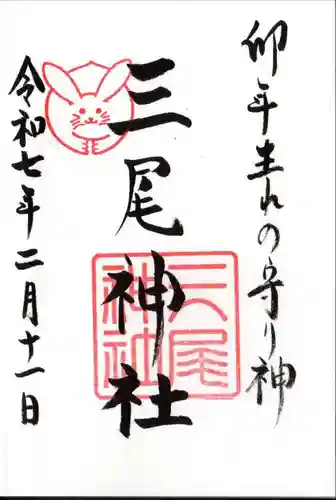 卯年生れの守り神
三尾神社
三尾神社
令和七年二月十一日